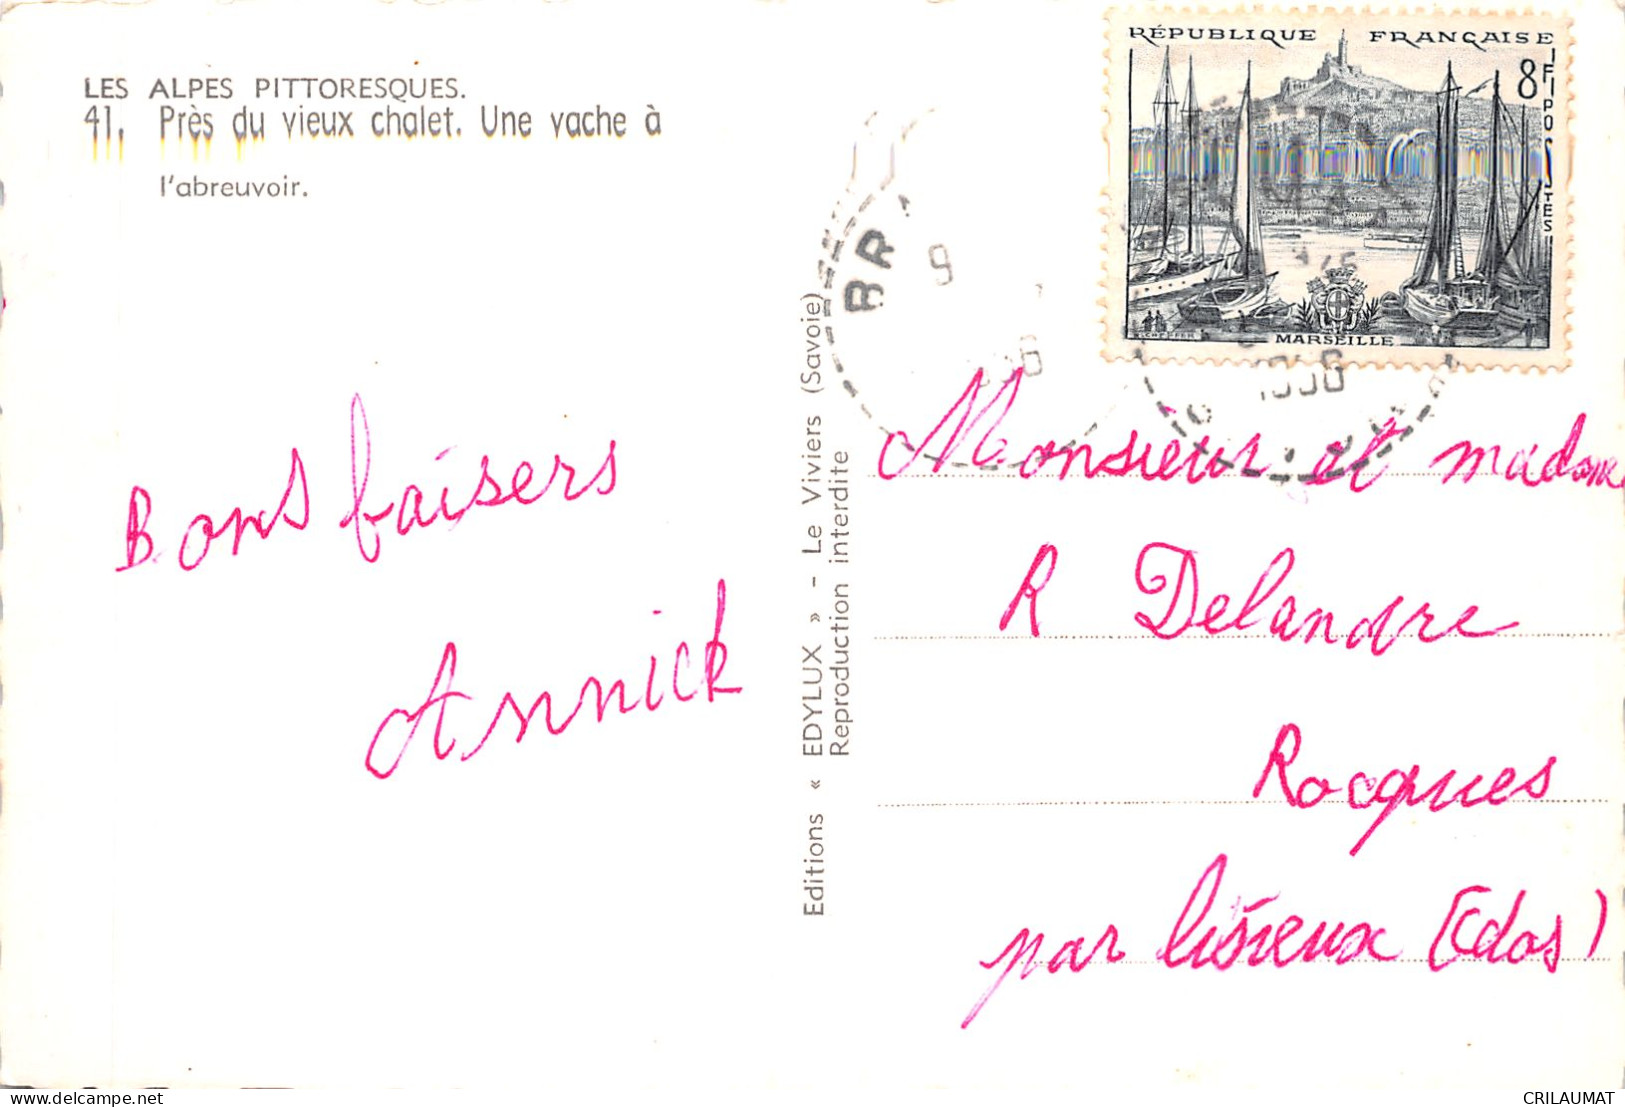 LES ALPES PITTORESQUES.
41. Près du vieux chalet. Une vache à
l'abreuvoir.
RÉPUBLIQUE FRANÇAISE
8F
POSTES
MARSEILLE
BR
9
1956
Bons baisers
Annick
Editions « EDYLUX » - Le Viviers (Savoie)
Reproduction interdite
Monsieur et madame
R Delandre
Rocques
par lisieux (Cdos)
delcampe.net
CRILAUMAT